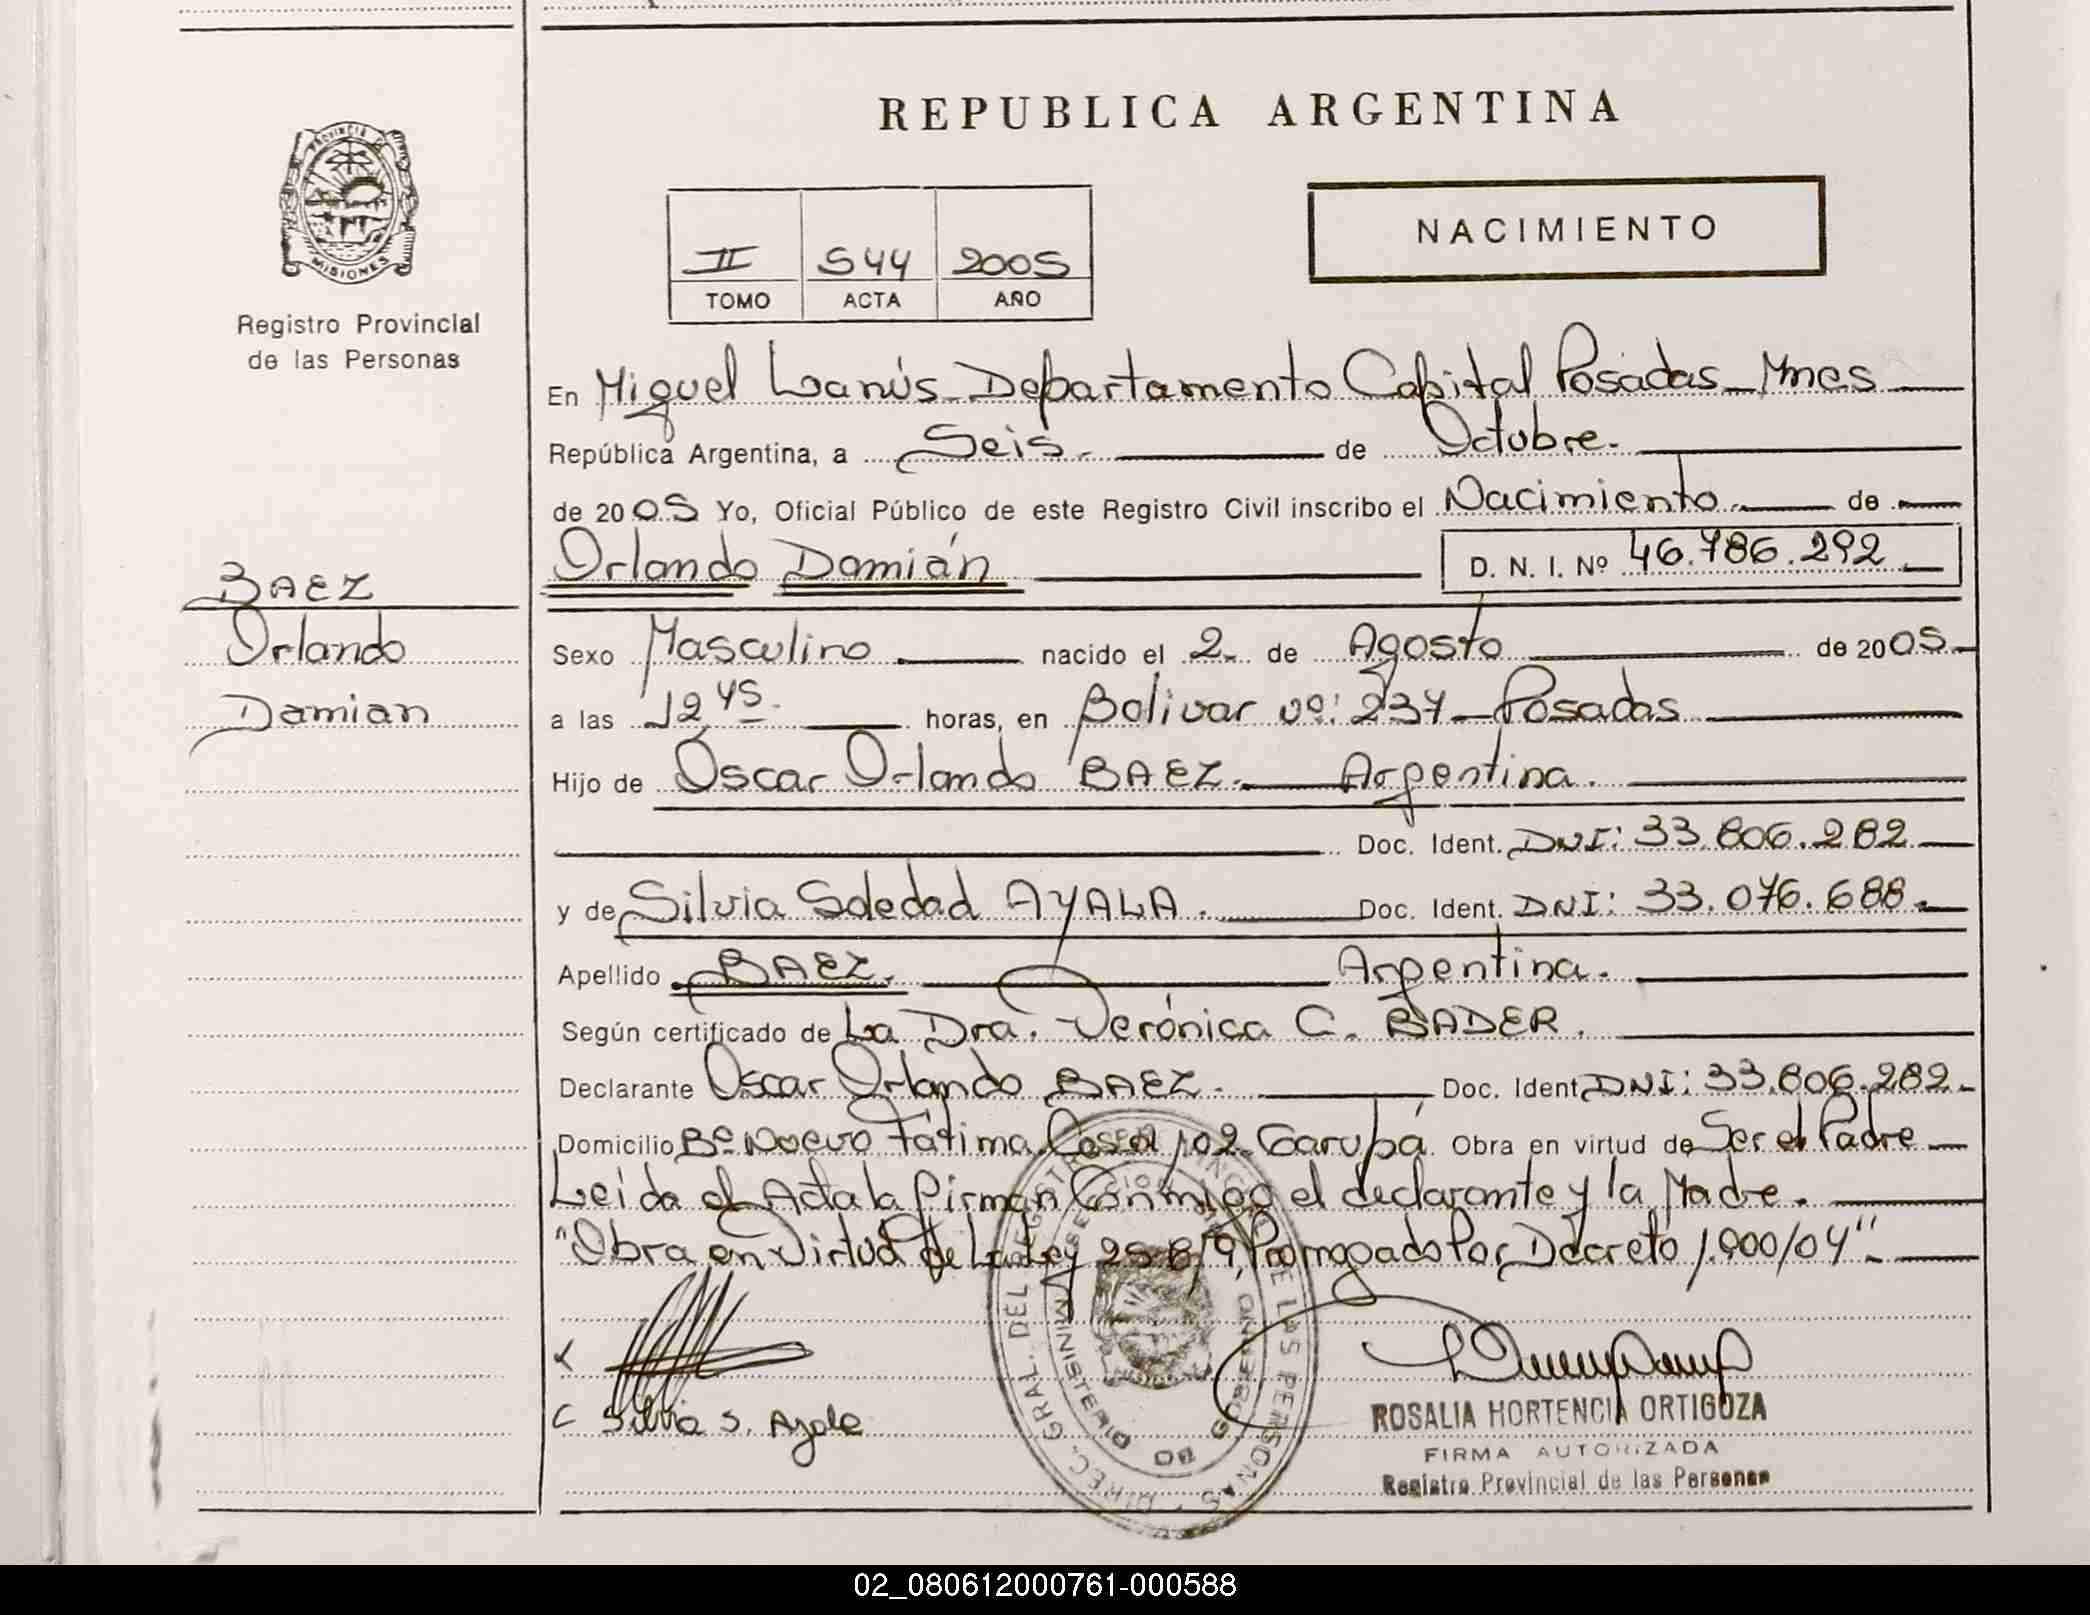 REPUBLICA ARGENTINA
NACIMIENTO
PROVINCIA DE
MISIONES
Registro Provincial
de las Personas
II 544 2005
TOMO ACTA AÑO
En Miguel Lanús - Departamento Capital Posadas - Mnes
República Argentina, a Seis.- de Octubre.-
de 2005 Yo, Oficial Público de este Registro Civil inscribo el Nacimiento de
Orlando Damián D. N. I. Nº 46.786.292
BAEZ
Orlando
Damian
Sexo Masculino nacido el 2 de Agosto de 2005
a las 12 45 horas, en Bolivar nº: 237 - Posadas
Hijo de Oscar Orlando BAEZ.- Argentina.
Doc. Ident. DNI: 33.806.282
y de Silvia Soledad AYALA. Doc. Ident. DNI: 33.076.688.-
Apellido BAEZ. Argentina.
Según certificado de La Dra. Verónica C. BADER.
Declarante Oscar Orlando BAEZ. Doc. Ident. DNI: 33.806.282.-
Domicilio Bº Nuevo Fátima Casa 102 Garupá. Obra en virtud de Ser el Padre
Leida el Acta la firman Conmigo el declarante y la Madre.
"Obra en Virtud de La Ley 25.819, Prorrogado Por Decreto 1.900/04"
Silvia S. Ayala
DIREC. GRAL. DEL REGISTRO PROVINCIAL DE LAS PERSONAS
MINISTERIO DE GOBIERNO
ROSALIA HORTENCIA ORTIGOZA
FIRMA AUTORIZADA
Registro Provincial de las Personas
02_080612000761-000588